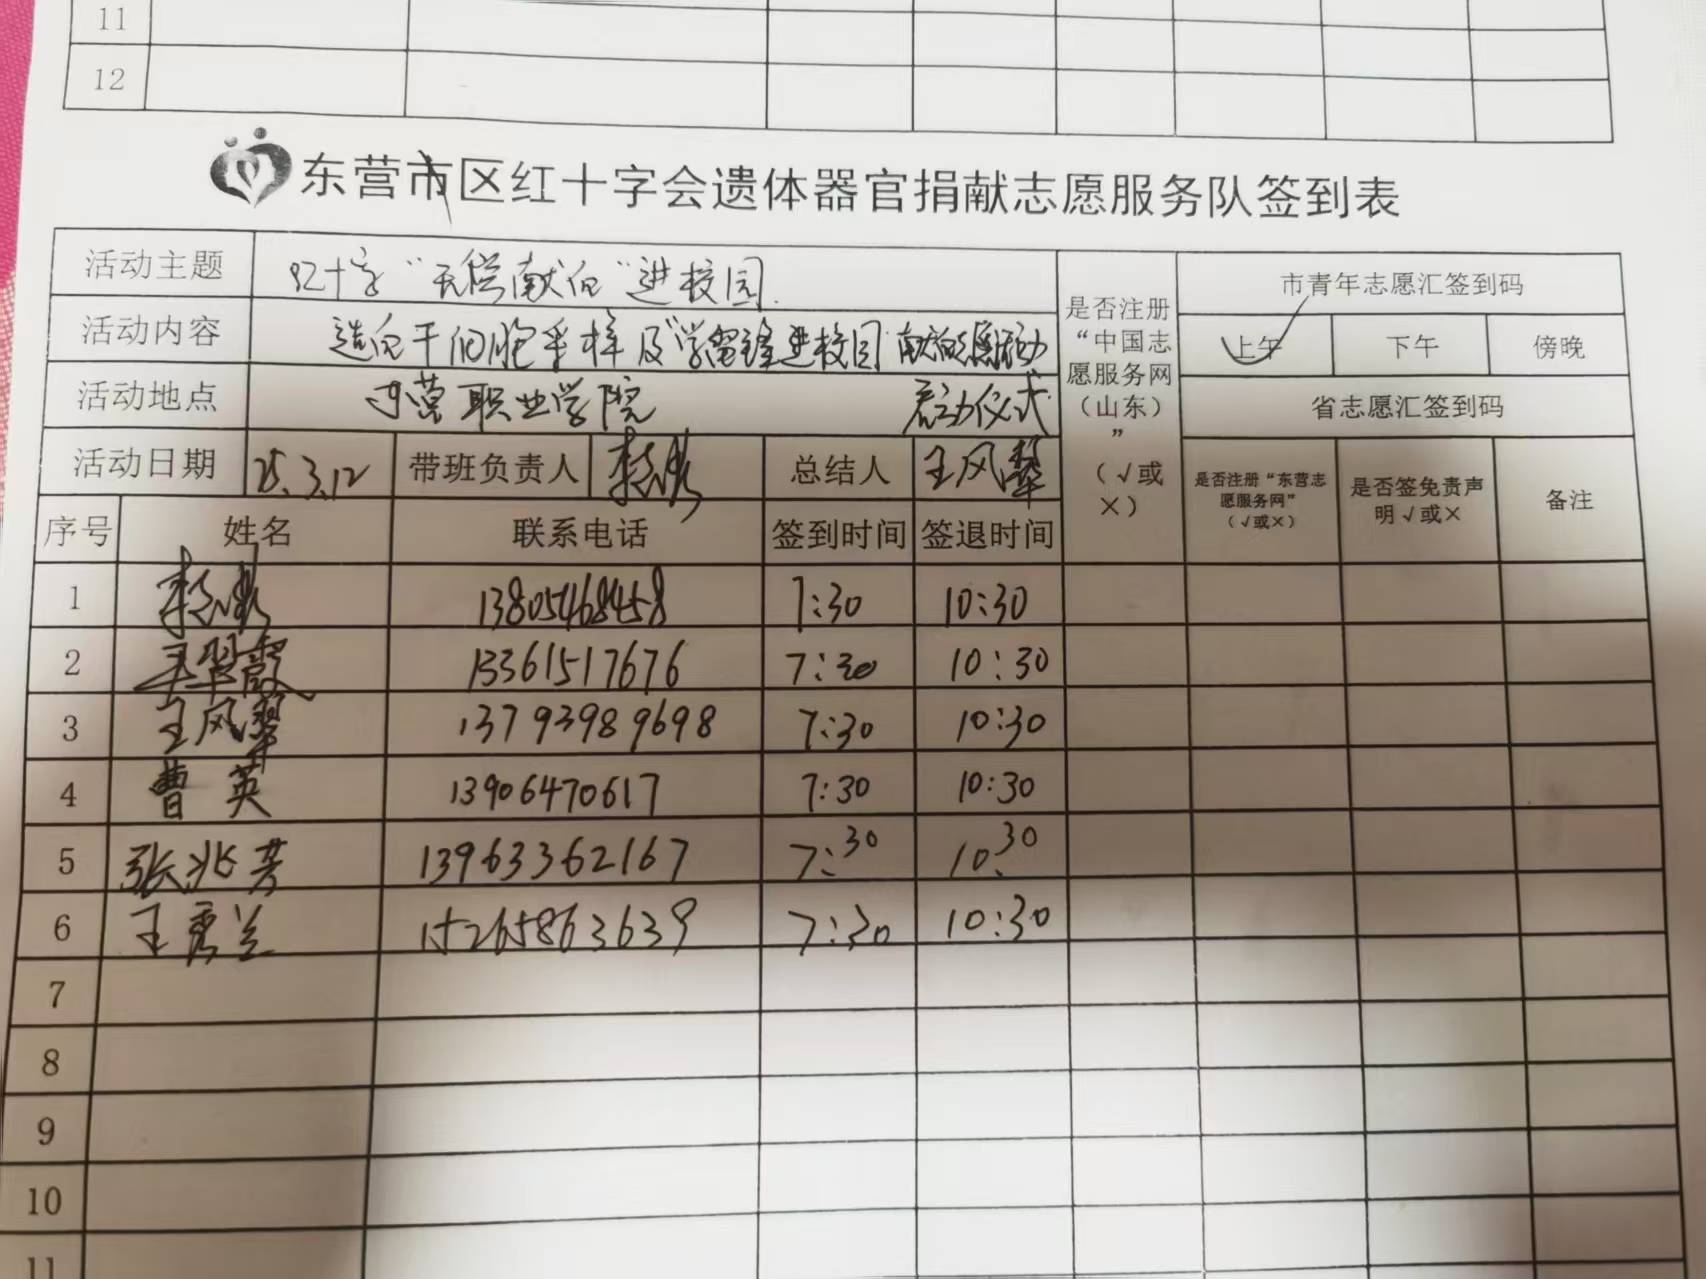 11
12
东营市区红十字会遗体器官捐献志愿服务队签到表
活动主题 红十字“无偿献血”进校园
是否注册“中国志愿服务网（山东）”（√或×）
市青年志愿汇签到码
活动内容 造血干细胞采样及“学雷锋进校园 献血志愿活动
启动仪式
上午 下午 傍晚
活动地点 东营职业学院
省志愿汇签到码
活动日期 25.3.12 带班负责人 总结人 王风翠
是否注册“东营志愿服务网”（√或×） 是否签免责声明√或× 备注
序号 姓名 联系电话 签到时间 签退时间
1 13805468458 7:30 10:30
2 王翠霞 13361517676 7:30 10:30
3 王风翠 13793989698 7:30 10:30
4 曹英 13906470617 7:30 10:30
5 张兆芳 13963362167 7:30 10:30
6 王秀兰 15265863639 7:30 10:30
7
8
9
10
11